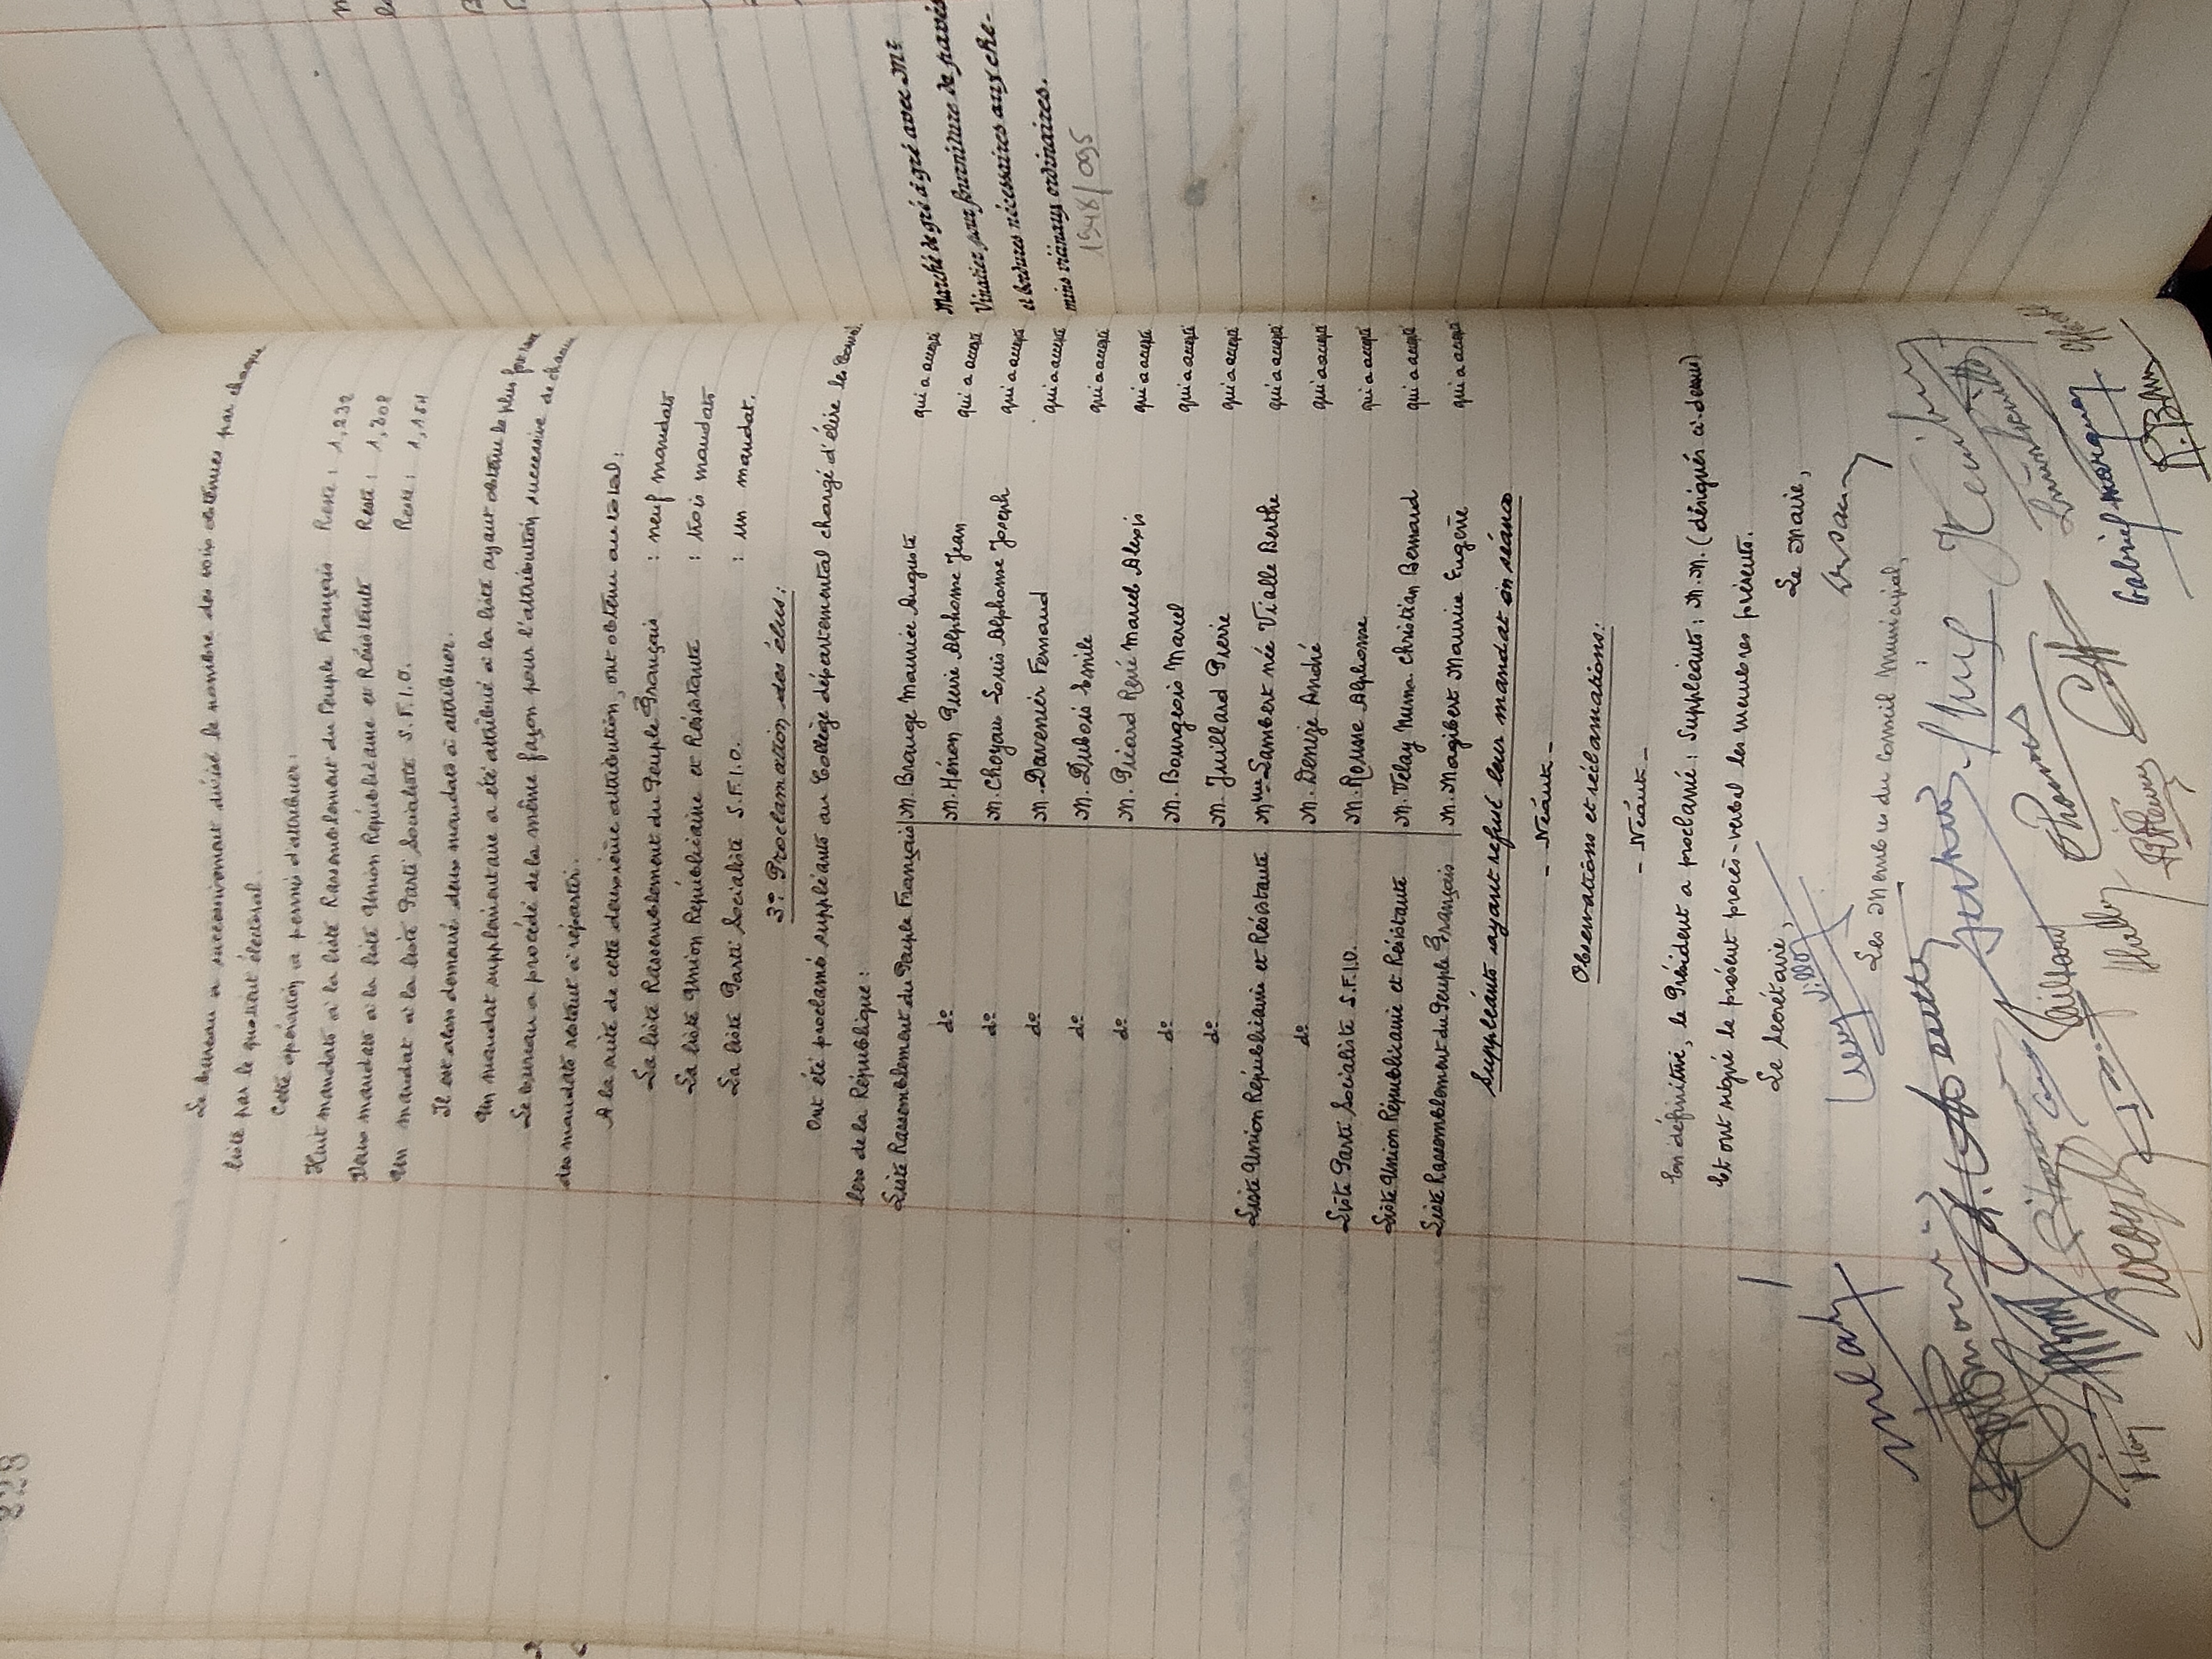 328
Le bureau a successivement divisé le nombre des voix obtenues par chaque
liste par le quotient électoral.
Cette opération a permis d'attribuer:
Huit mandats à la liste Rassemblement du Peuple Français Reste: 1,232
Deux mandats à la liste Union Républicaine et Résistante Reste: 1,308
Un mandat à la liste Parti Socialiste S.F.I.O. Reste:
Il est alors demeuré deux mandats à attribuer.
Un mandat supplémentaire a été attribué à la liste ayant obtenu le plus fort reste
Le bureau a procédé de la même façon pour l'attribution successive de chacun
des mandats restant à répartir.
A la suite de cette deuxième attribution, ont obtenu au total:
La liste Rassemblement du Peuple Français : neuf mandats
La liste Union Républicaine et Résistante : trois mandats
La liste Parti Socialiste S.F.I.O. : un mandat.
3º Proclamation des élus:
Ont été proclamés suppléants au Collège départemental chargé d'élire les Conseil
lers de la République:
Liste Rassemblement du Peuple Français M. Brauge Maurice Auguste qui a accepté
dº M. Hénon Pierre Alphonse Jean qui a accepté
dº M. Choyau Louis Alphonse Joseph qui a accepté
dº M. Davenier Fernand qui a accepté
dº M. Dubois Emile qui a accepté
dº M. Piéard René Marcel Alexis qui a accepté
dº M. Bourgeois Marcel qui a accepté
dº M. Juillard Pierre qui a accepté
Liste Union Républicaine et Résistante Mme Lambert née Vialle Berthe qui a accepté
dº M. Denize André qui a accepté
Liste Parti Socialiste S.F.I.O. M. Rousse Alphonse qui a accepté
Liste Union Républicaine et Résistante M. Velay Numa Christian Bernard qui a accepté
Liste Rassemblement du Peuple Français M. Magibert Maurice Eugène qui a accepté
Suppléants ayant refusé leur mandat en séance
- Néant -
Observations et réclamations:
- Néant -
En définitive, le Président a proclamé: Suppléants: M.M. (désignés ci-dessus)
Et ont signé le présent procès-verbal les membres présents.
Le Secrétaire, Le Maire,
Les Membres du Conseil Municipal,
Gabriel Marquez
Marché de gré à gré avec Mr
Viratier pour fourniture de pavés
et bordures nécessaires aux che-
mins vicinaux ordinaires.
1948/095